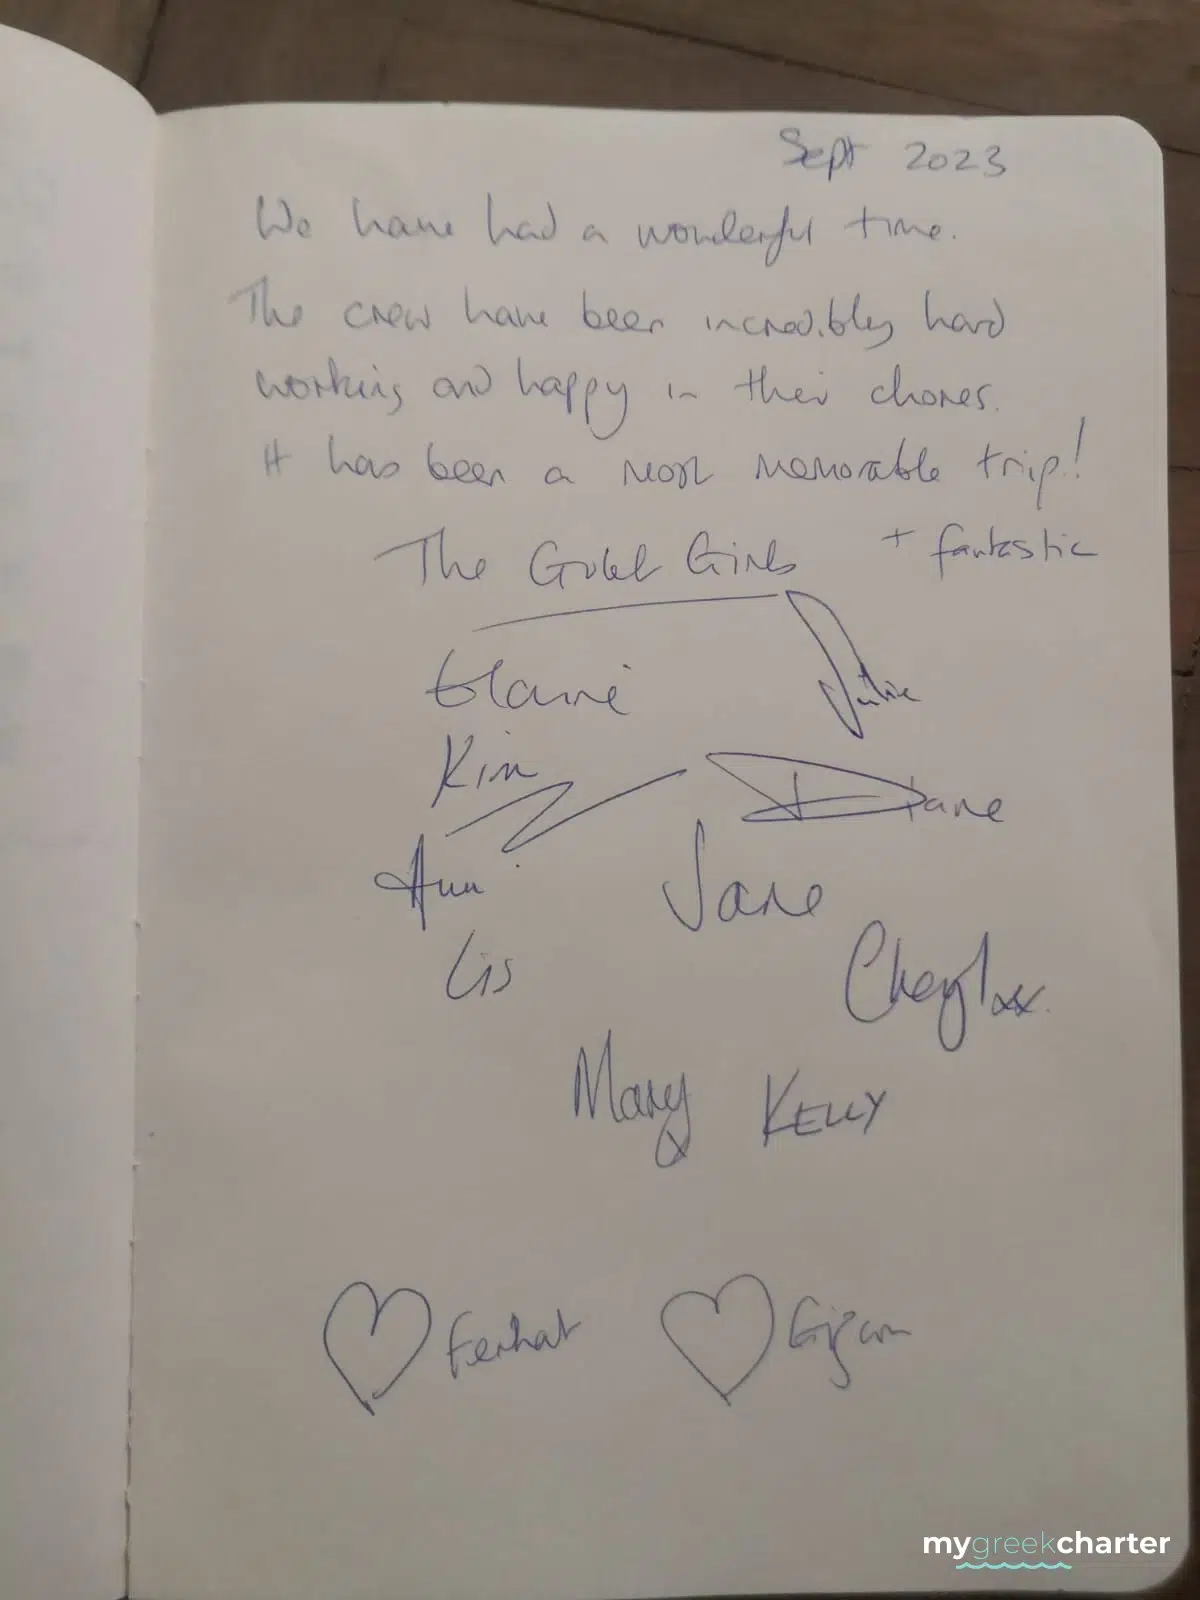 Sept 2023
We have had a wonderful time.
The crew have been incredibly hard
working and happy in their chores.
It has been a most memorable trip!
+ fantastic
The Gulet Girls
Elaine
Julie
Kim
Diane
Ann
Jane
Lis
Cheryl xx.
Mary KELLY
Ferhat
mygreekcharter